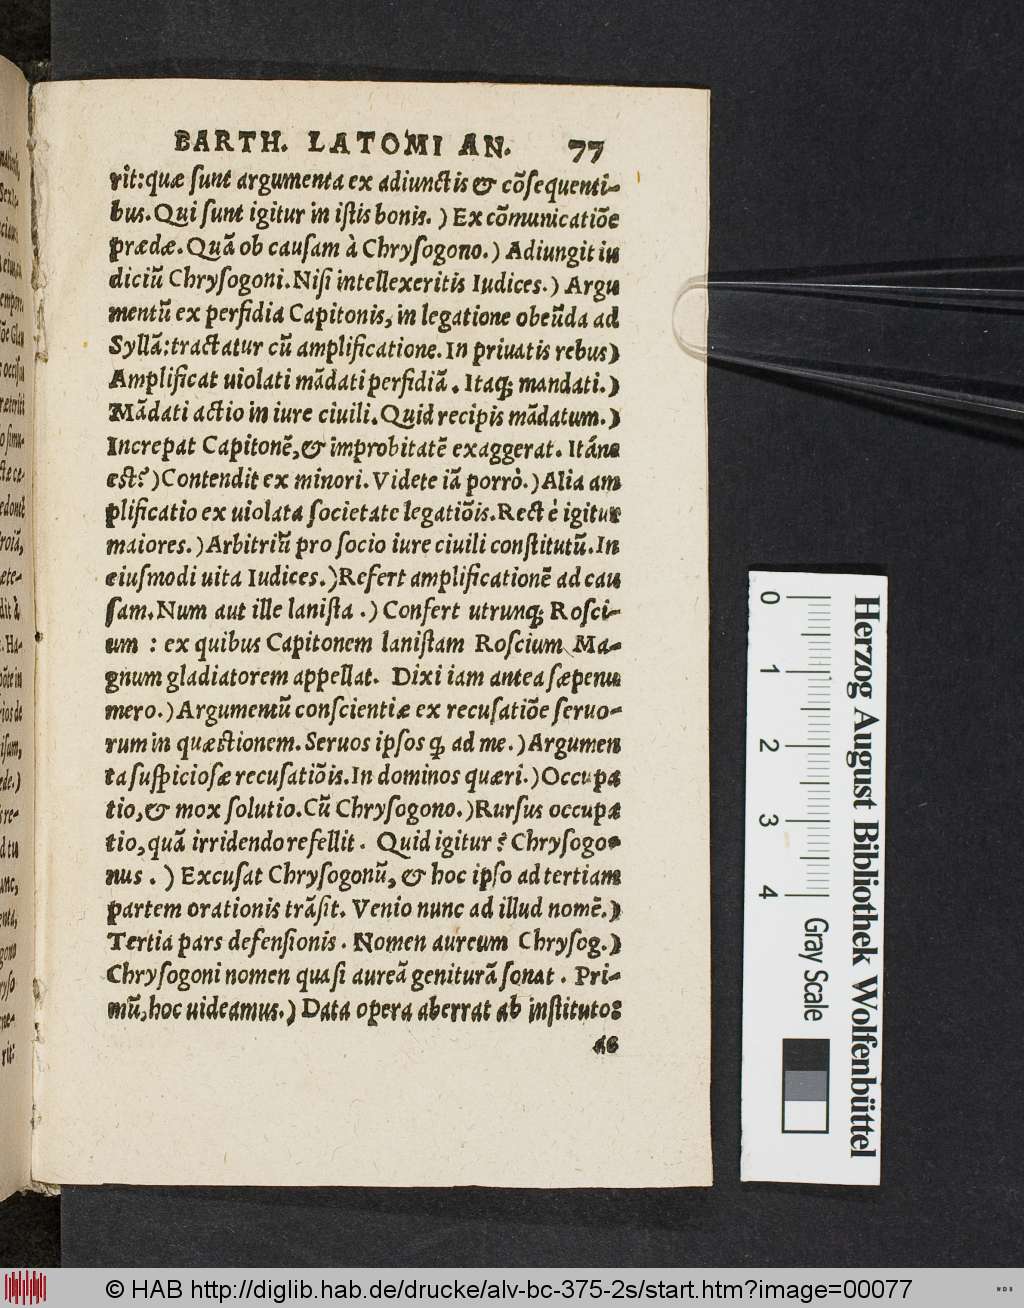 BARTH. LATOMI AN. 77
rit:quæ ſunt argumenta ex adiunctis & cõſequenti-
bus. Qui ſunt igitur in iſtis bonis. ) Ex cõmunicatiõe
prædæ. Quã ob cauſam à Chryſogono.) Adiungit iu
diciũ Chryſogoni. Niſi intellexeritis Iudices.) Argu
mentũ ex perfidia Capitonis, in legatione obeũda ad
Syllã: tractatur cũ amplificatione. In priuatis rebus)
Amplificat uiolati mãdati perfidiã. Itaq; mandati.)
Mãdati actio in iure ciuili. Quid recipis mãdatum.)
Increpat Capitonẽ, & improbitatẽ exaggerat. Itáne
est?) Contendit ex minori. Videte iã porrò.) Alia am
plificatio ex uiolata ſocietate legatiõis. Rectè igitur
maiores.) Arbitriũ pro ſocio iure ciuili conſtitutũ. In
eiuſmodi uita Iudices.) Refert amplificationẽ ad cau
ſam. Num aut ille laniſta .) Confert utrunq; Roſci-
um : ex quibus Capitonem laniſtam Roſcium Ma-
gnum gladiatorem appellat. Dixi iam antea ſæpenu
mero.) Argumentũ conſcientiæ ex recuſatiõe ſeruo-
rum in quæstionem. Seruos ipſos q; ad me.) Argumen
ta ſuſpicioſæ recuſatiõis. In dominos quæri.) Occupa
tio, & mox ſolutio. Cũ Chryſogono.) Rurſus occupa
tio, quã irridendo refellit. Quid igitur? Chryſogo-
nus . ) Excuſat Chryſogonũ, & hoc ipſo ad tertiam
partem orationis trãſit. Venio nunc ad illud nomẽ.)
Tertia pars defenſionis. Nomen aureum Chryſog.)
Chryſogoni nomen quaſi aureã genituram ſonat. Pri-
mũ, hoc uideamus.) Data opera aberrat ab inſtituto:
ac
0 1 2 3 4
Gray Scale
Herzog August Bibliothek Wolfenbüttel
© HAB http://diglib.hab.de/drucke/alv-bc-375-2s/start.htm?image=00077